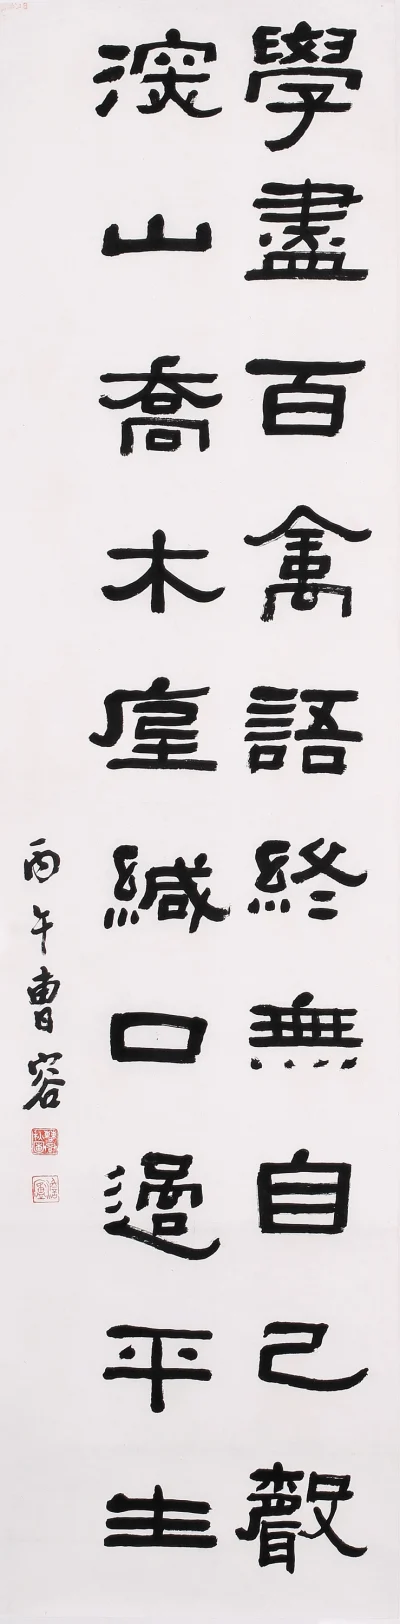 學盡百禽語終無自己聲
深山喬木底緘口過平生
丙午曹容